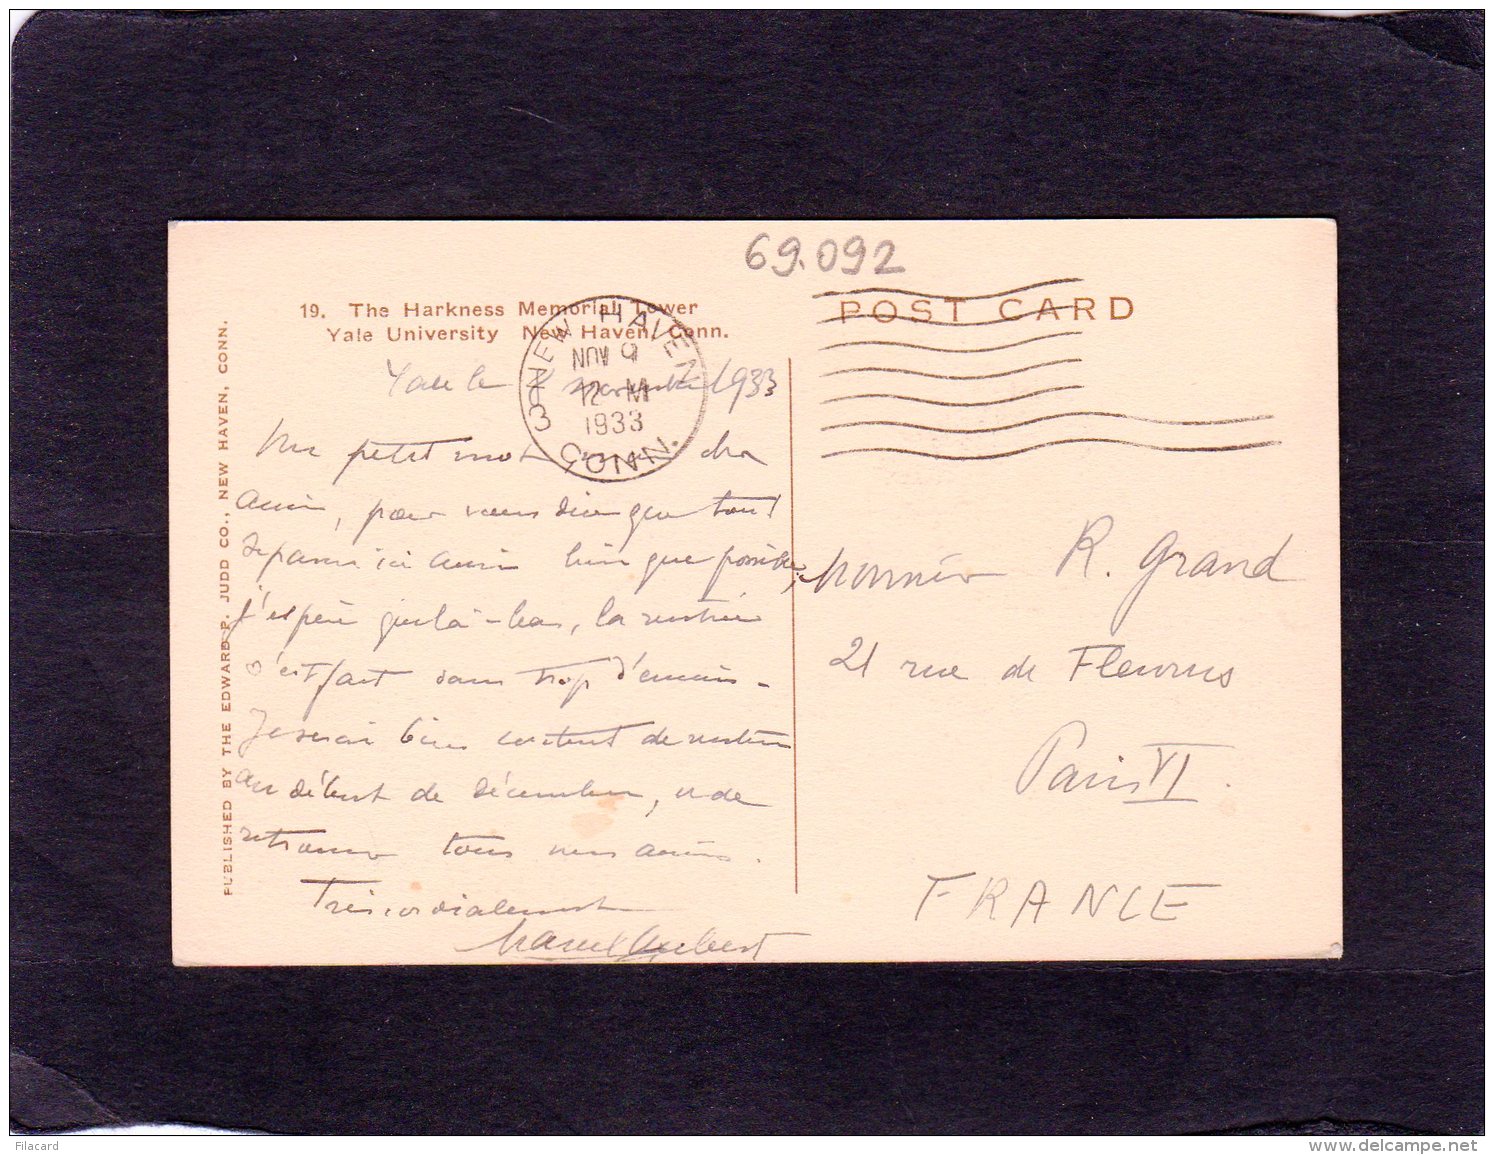 69.092
19. The Harkness Memorial Tower
Yale University New Haven, Conn.
POST CARD
NEW HAVEN 3
NOV 9
12 M
1933
CONN.
PUBLISHED BY THE EDWARD P. JUDD CO., NEW HAVEN, CONN.
Yale le 8 novembre 1933
Un petit mot cher
ami, pour vous dire que tout
se passe ici aussi bien que possible,
j'espère que là-bas, la rentrée
s'est fait sans trop d'ennuis -
Je serai bien content de rentrer
au début de décembre, et de
retrouver tous mes amis.
Très cordialement
Marcel Aubert
Monsieur R. Grand
21 rue de Fleurus
Paris VI.
FRANCE
Filacard
www.delcampe.net